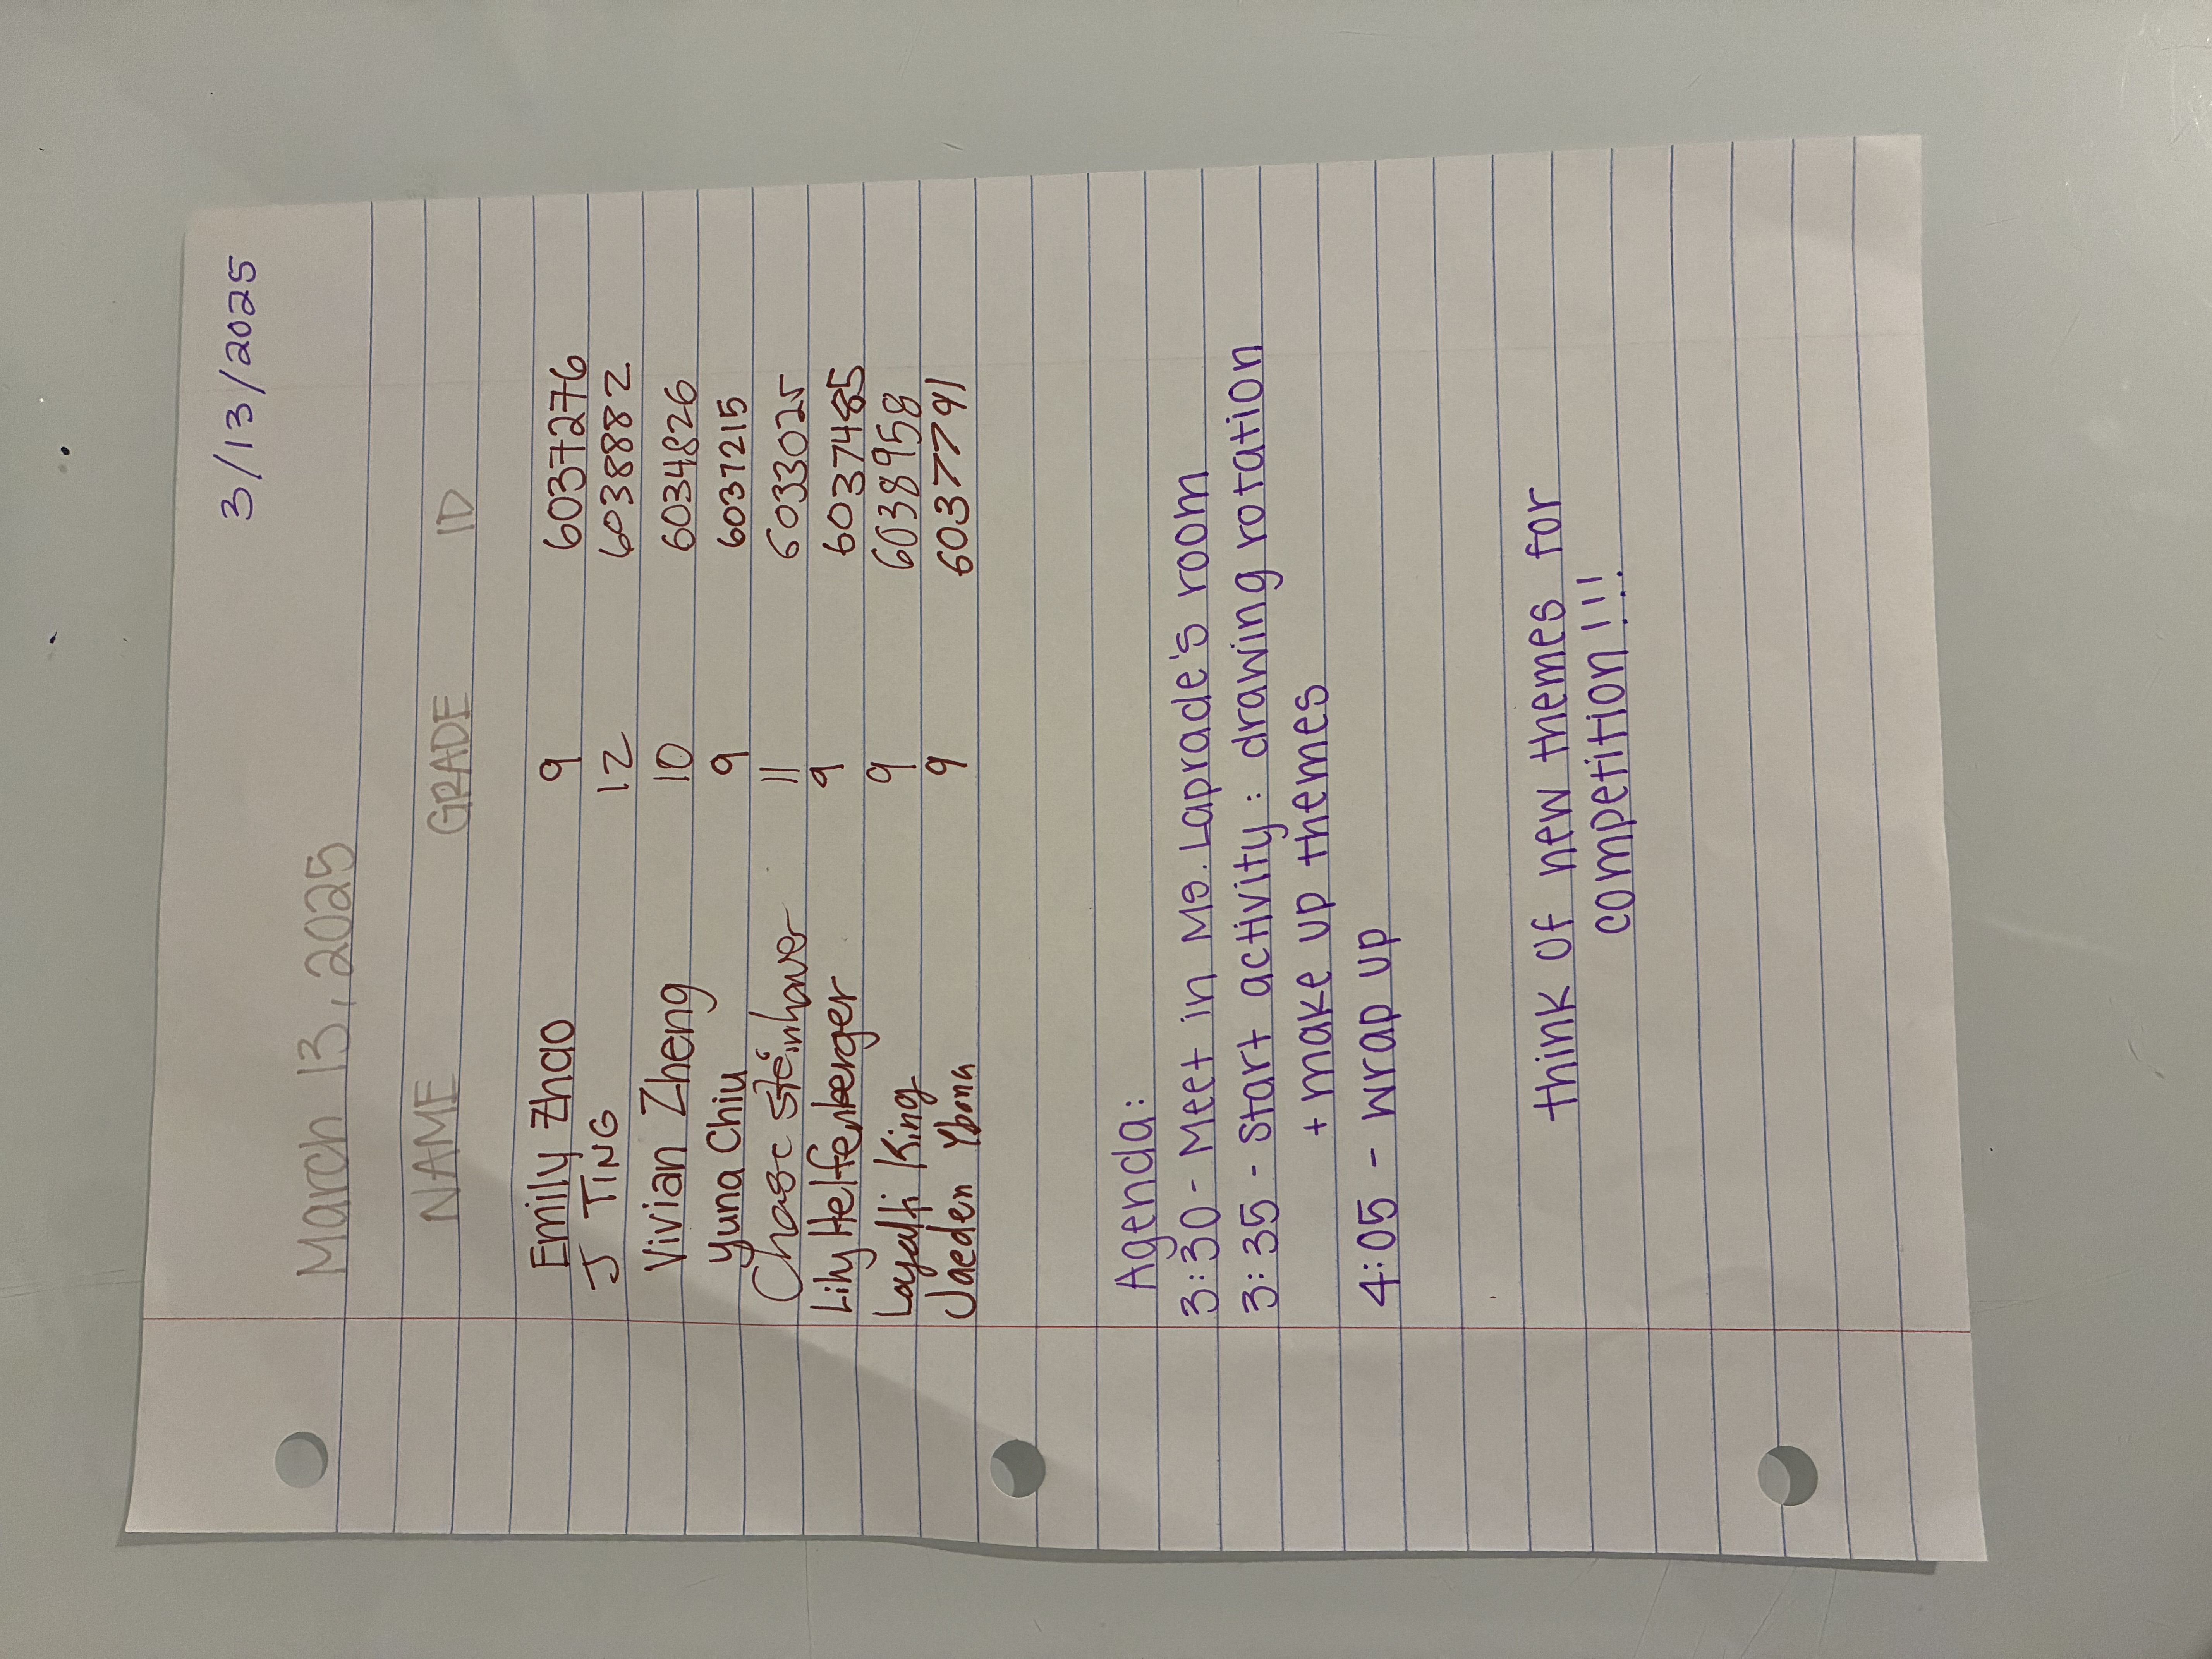 3/13/2025
March 13, 2025
NAME GRADE ID
Emily Zhao 9 6037276
J TING 12 6038882
Vivian Zheng 10 6034826
Yuna Chiu 9 6037215
Chase Steinhaver 11 6033025
Lily Helfenberger 9 6037485
King 9 6038958
Jaeden 9 6037791
Agenda:
3:30 - Meet in Ms. Laprade's room
3:35 - Start activity: drawing rotation
+ make up themes
4:05 - wrap up
think of new themes for
competition!!!